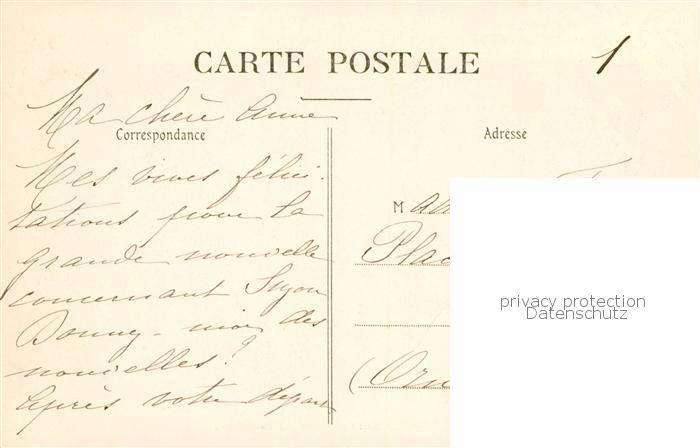 CARTE POSTALE
1
Ma chère Anne
Correspondance
Adresse
Mes vives félici-
tations pour la
grande nouvelle
concernant Suzon
Donnez-moi des
nouvelles?
Après votre départ
M
Plac
(Orn
privacy protection
Datenschutz